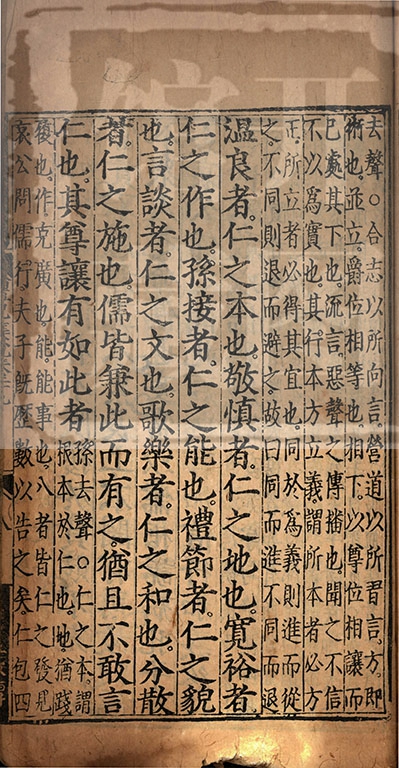 去聲○合志以所向言營道以所習言方即
術也並立爵位相等也相下以尊位相讓而
已處其下也流言惡聲之傳播也聞之不信
不以為實也其行本方立義謂所本者必方
正所立者必得其宜也同於為義則進而從
之不同則退而避之故曰同而進不同而退
溫良者仁之本也敬慎者仁之地也寬裕者
仁之作也孫接者仁之能也禮節者仁之貌
也言談者仁之文也歌樂者仁之和也分散
者仁之施也儒皆兼此而有之猶且不敢言
仁也其尊讓有如此者
孫去聲○仁之本謂
根本於仁也地猶踐
履也作充廣也能能事也八者皆仁之發見
哀公問儒行夫子既歷數以告之矣仁包四